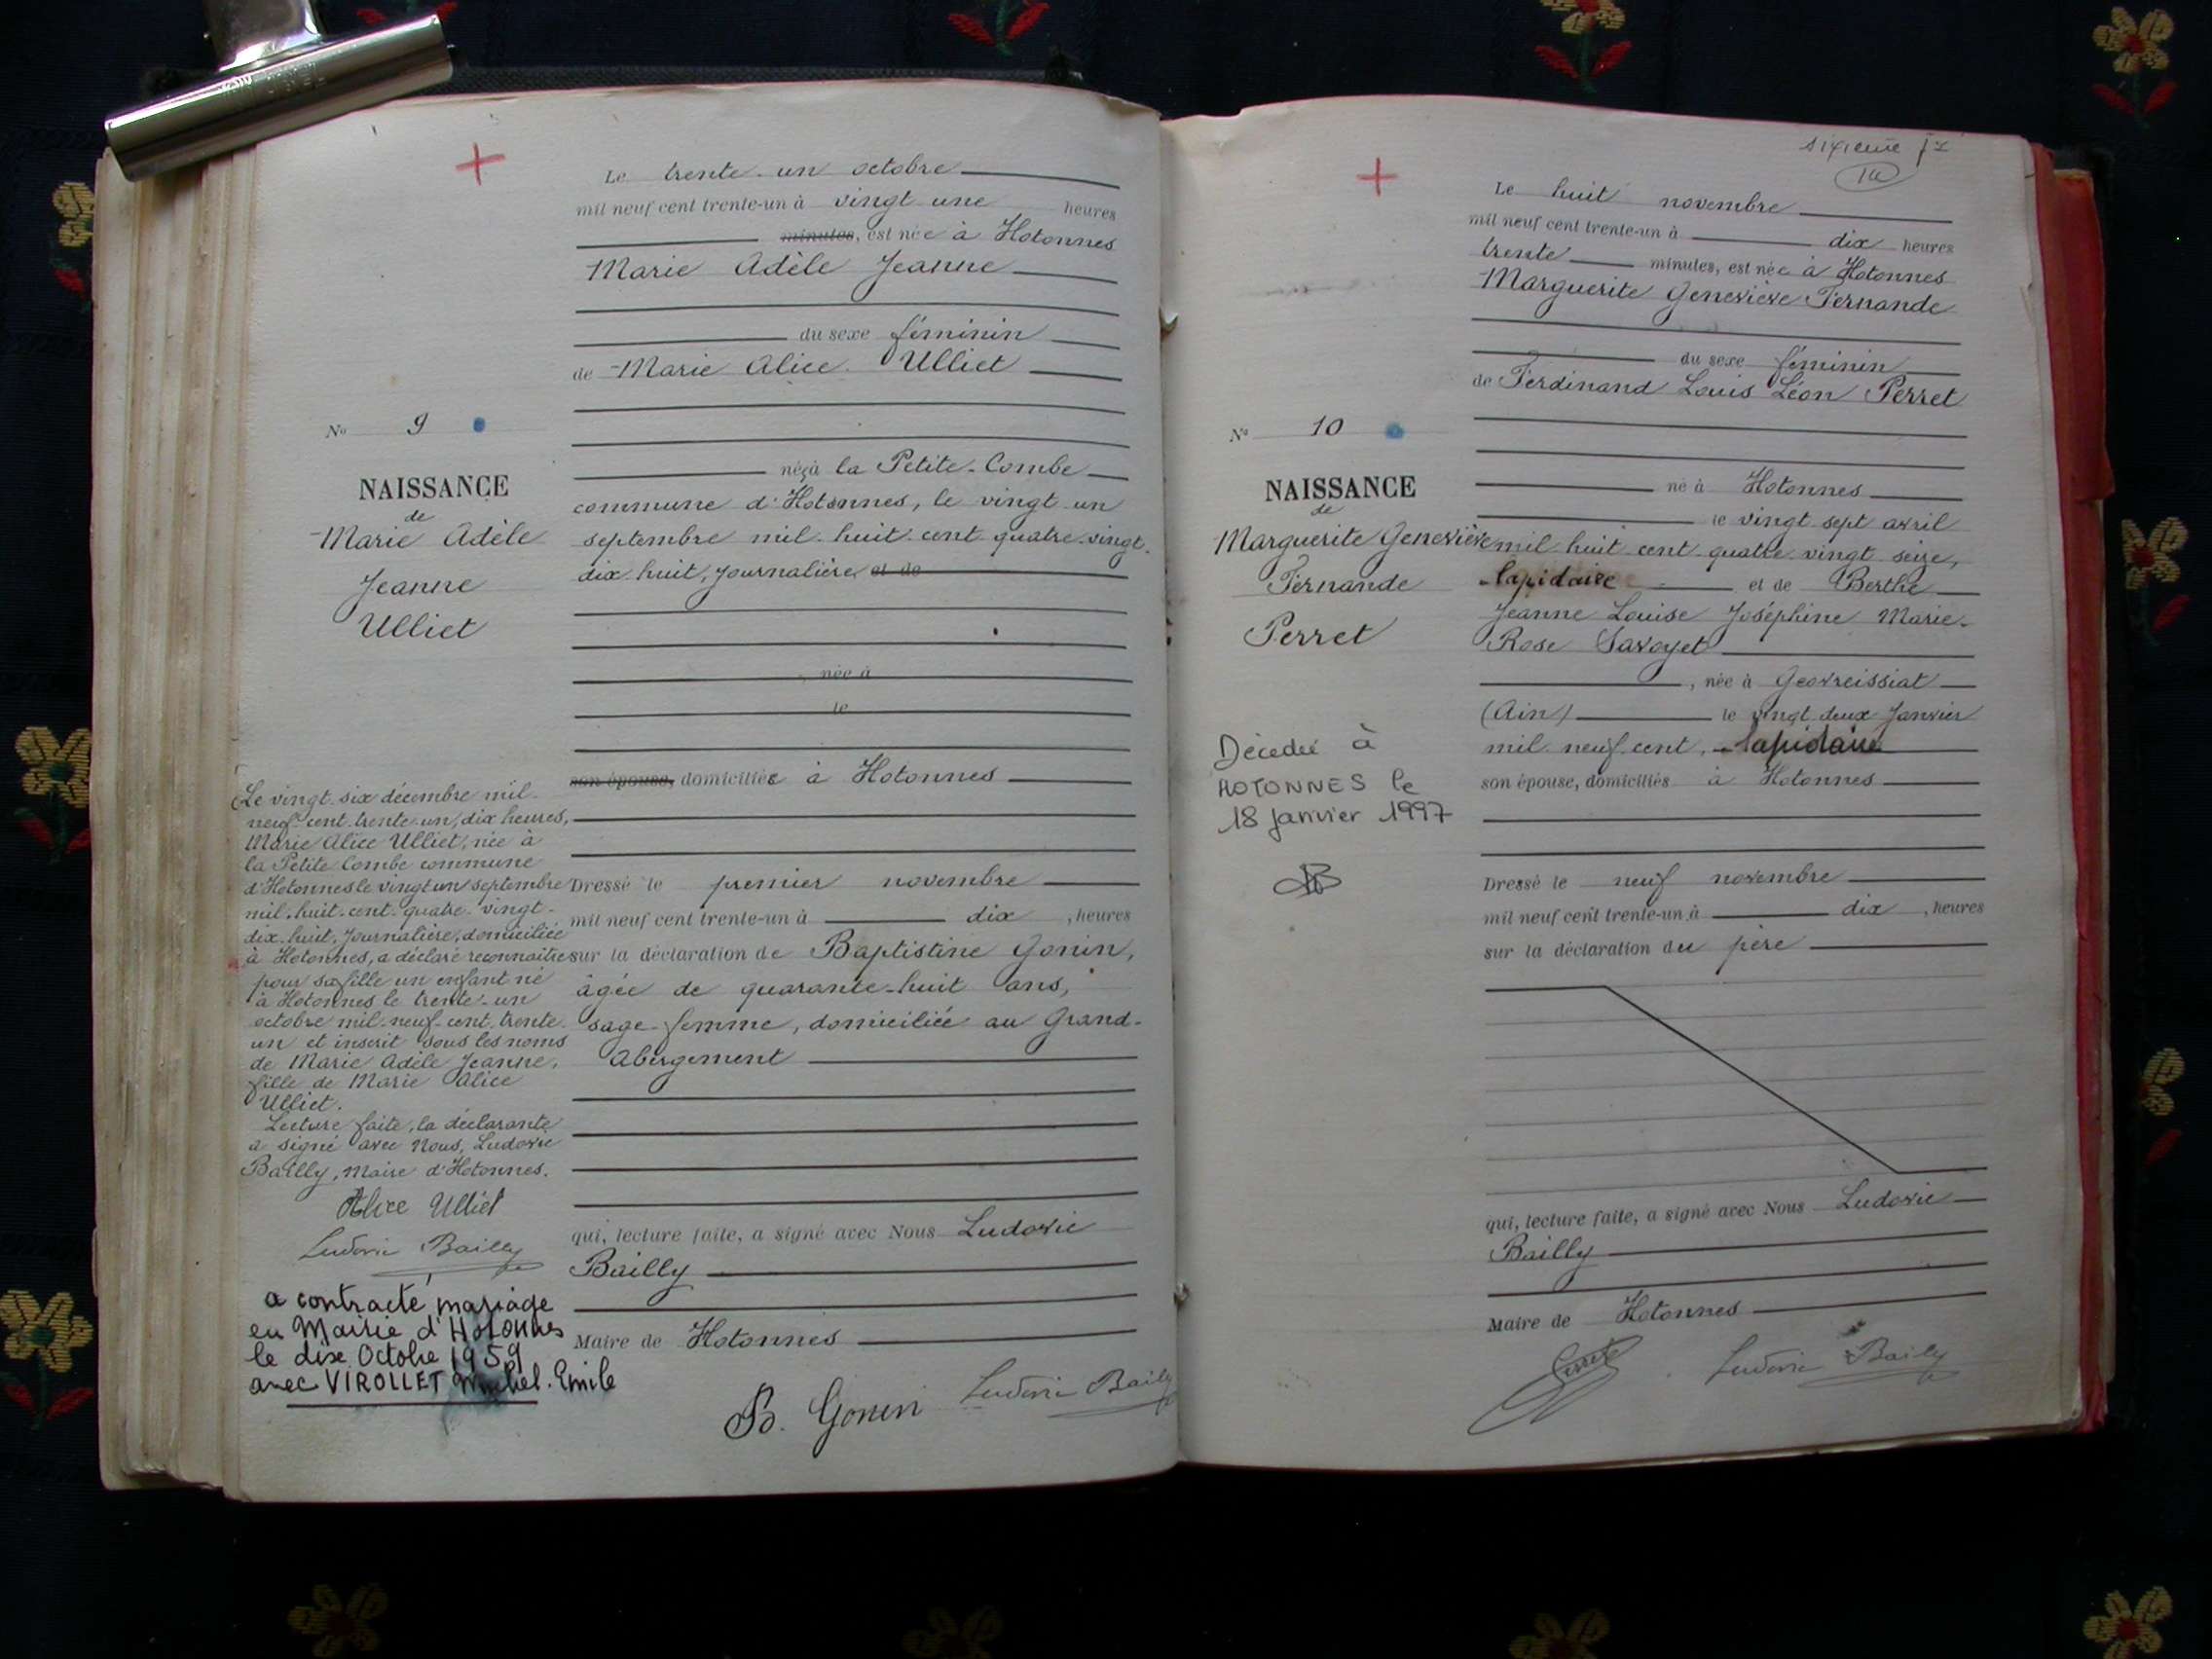 Le trente-un octobre
mil neuf cent trente-un à vingt une heures
minutes, est née à Hotonnes
Marie Adèle Jeanne
du sexe féminin
de Marie Alice Ulliet
née à la Petite-Combe
commune d'Hotonnes, le vingt un
septembre mil huit cent quatre-vingt-
dix huit, journalière, et de
née à
le
son épouse, domiciliée à Hotonnes
Dressé le premier novembre
mil neuf cent trente-un à dix, heures
sur la déclaration de Baptistine Gonin,
âgée de quarante-huit ans,
sage-femme, domiciliée au Grand-
Abergement
qui, lecture faite, a signé avec Nous Ludovic
Bailly
Maire de Hotonnes
B. Gonin Ludovic Bailly
No 9
NAISSANCE
de
Marie Adèle
Jeanne
Ulliet
Le vingt-six décembre mil-
neuf-cent-trente-un, dix heures,
Marie Alice Ulliet, née à
la Petite Combe commune
d'Hotonnes le vingt un septembre
mil-huit-cent-quatre-vingt-
dix-huit, journalière, domiciliée
à Hotonnes, a déclaré reconnaître
pour sa fille un enfant né
à Hotonnes le trente-un
octobre mil-neuf-cent-trente-
un et inscrit sous les noms
de Marie Adèle Jeanne,
fille de Marie Alice
Ulliet.
Lecture faite, la déclarante
a signé avec Nous, Ludovic
Bailly, Maire d'Hotonnes.
Alice Ulliet
Ludovic Bailly
a contracté mariage
en Mairie d'Hotonnes
le dix Octobre 1959
avec VIROLLET Michel-Emile
sixième
Le huit novembre
mil neuf cent trente-un à dix heures
trente minutes, est née à Hotonnes
Marguerite Geneviève Fernande
du sexe féminin
de Ferdinand Louis Léon Perret
né à Hotonnes
le vingt sept avril
mil huit cent quatre vingt seize,
lapidaire et de Berthe
Jeanne Louise Joséphine Marie-
Rose Savoyet
, née à Geovreissiat
(Ain) le vingt deux Janvier
mil neuf cent, lapidaire
son épouse, domiciliés à Hotonnes
Dressé le neuf novembre
mil neuf cent trente-un à dix, heures
sur la déclaration du père
qui, lecture faite, a signé avec Nous Ludovic
Bailly
Maire de Hotonnes
Perret Ludovic Bailly
No 10
NAISSANCE
de
Marguerite Geneviève
Fernande
Perret
Décédée à
HOTONNES le
18 Janvier 1997